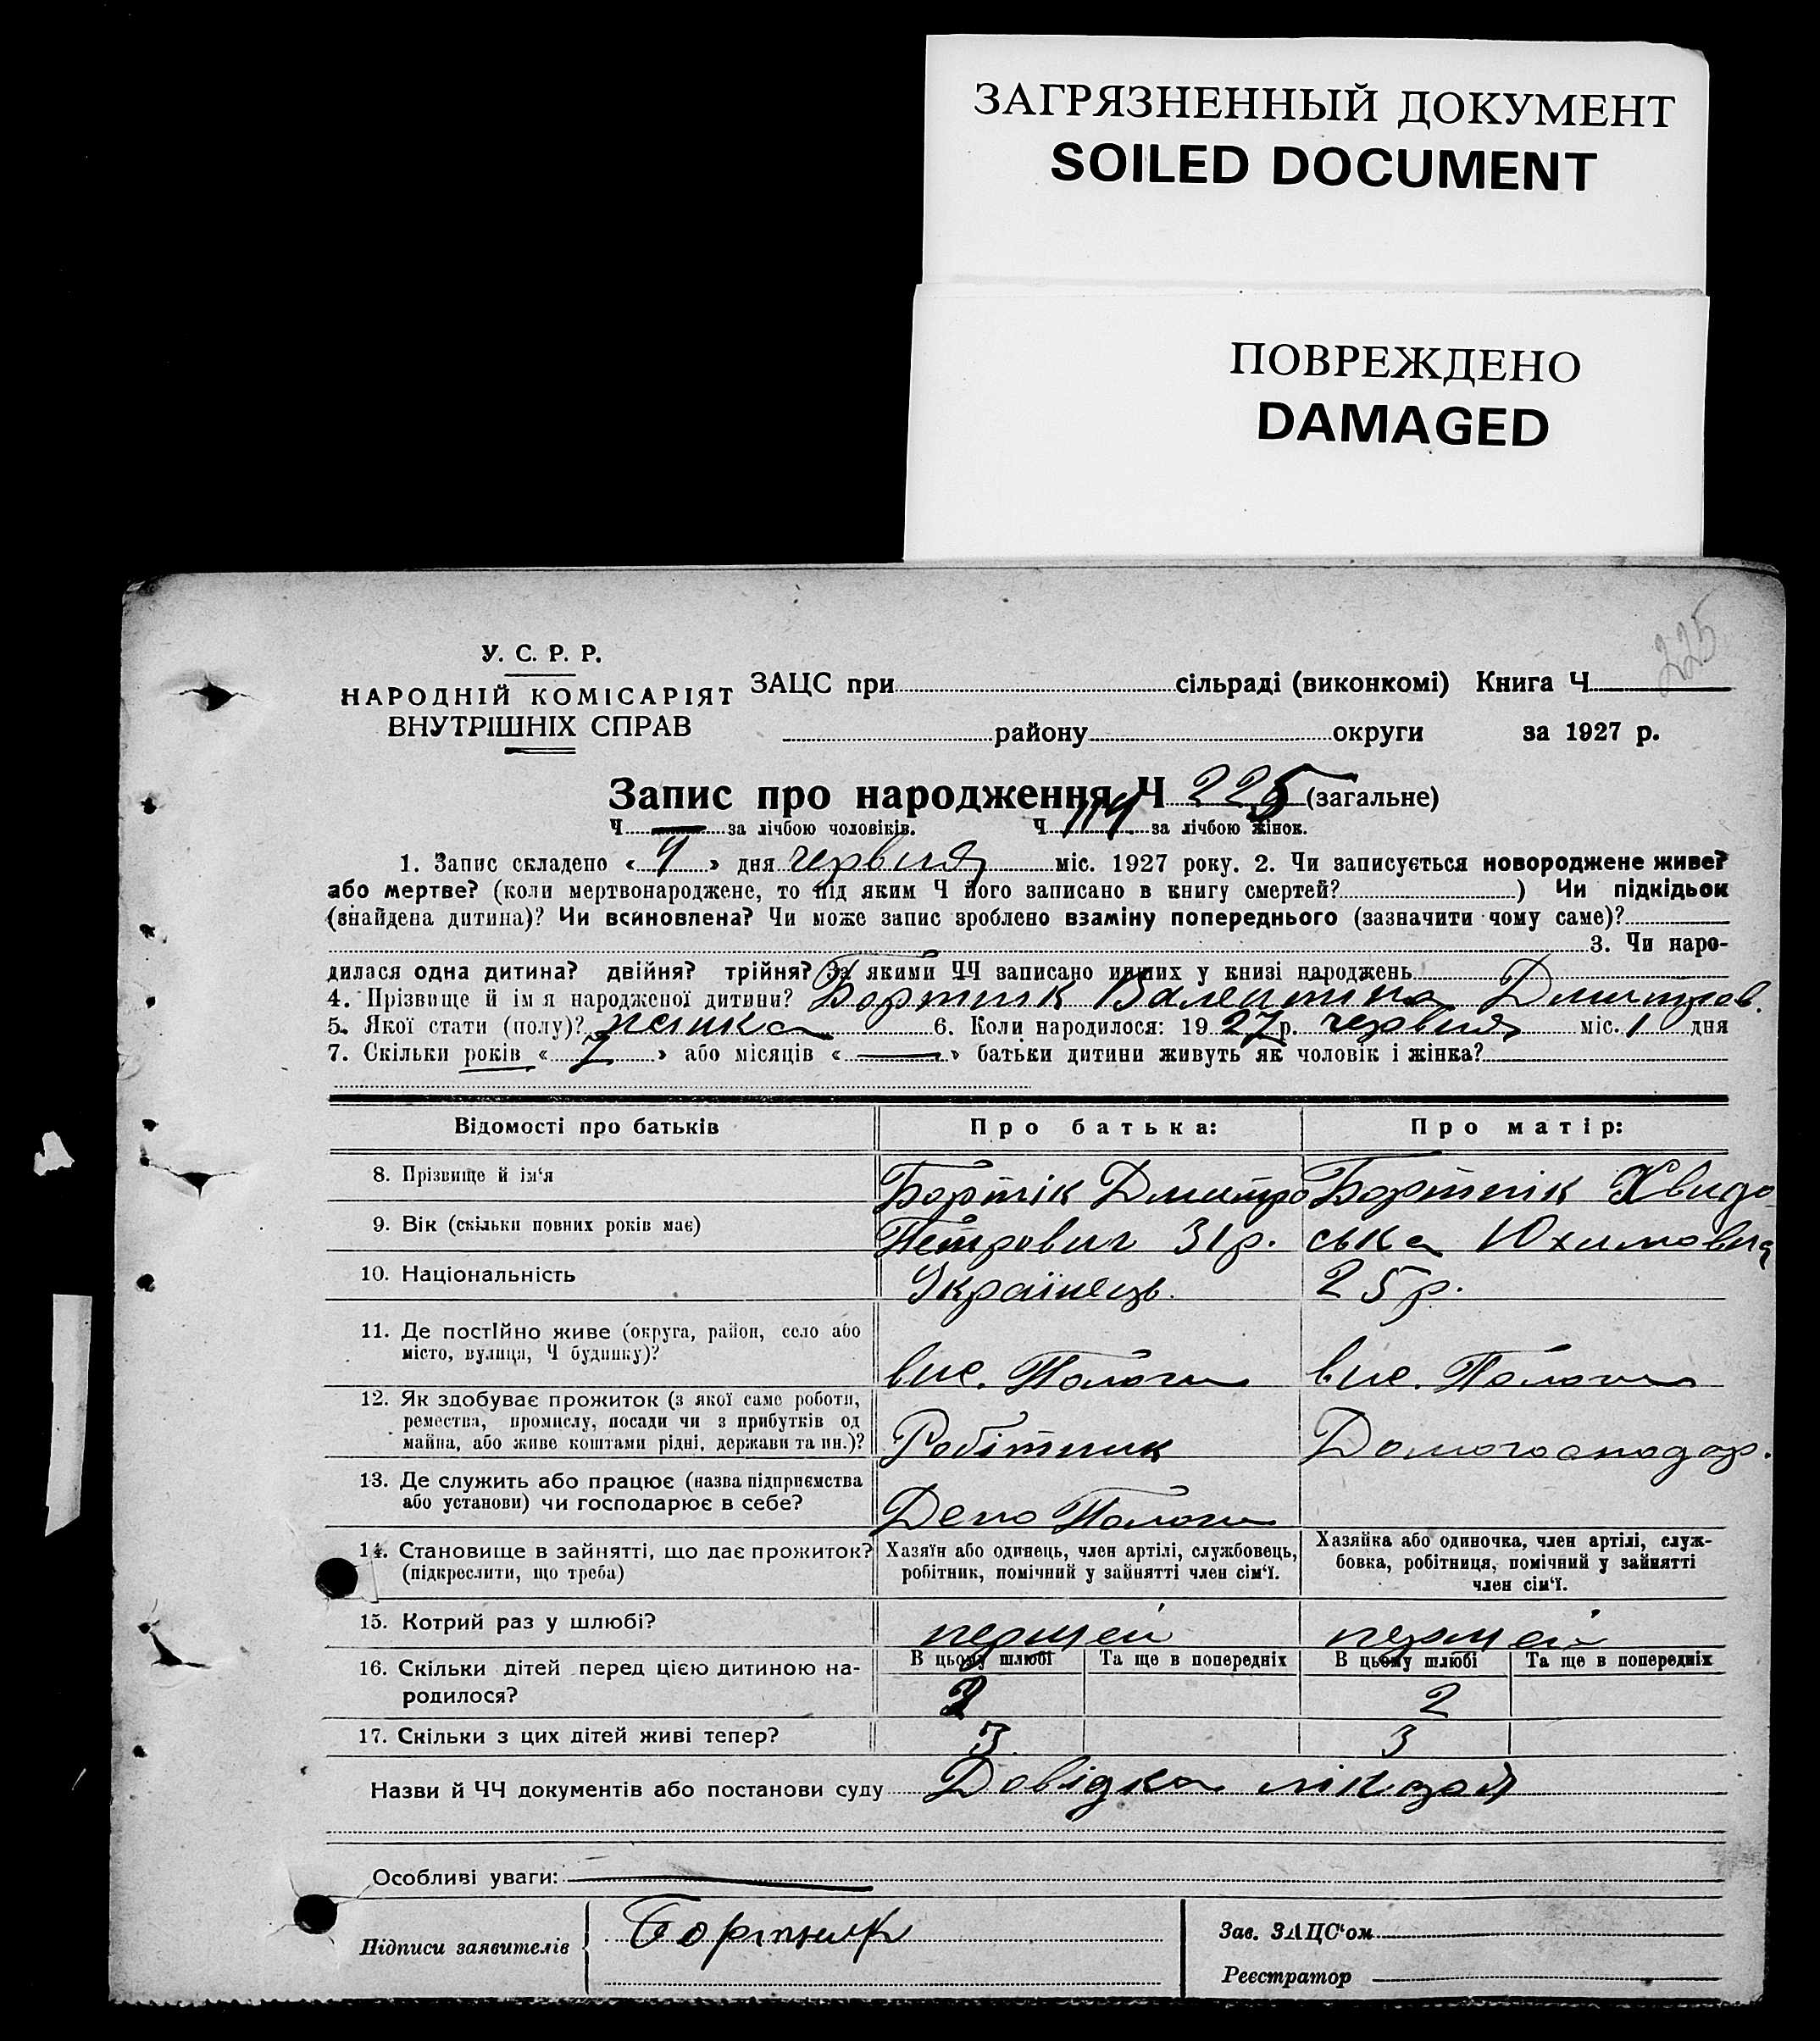 ЗАГРЯЗНЕННЫЙ ДОКУМЕНТ
SOILED DOCUMENT
ПОВРЕЖДЕНО
DAMAGED
225
У. С. Р. Р.
НАРОДНІЙ КОМІСАРІЯТ
ВНУТРІШНІХ СПРАВ
ЗАЦС при сільраді (виконкомі) Книга Ч.
району округи за 1927 р.
Запис про народження Ч 225 (загальне)
Ч. — за лічбою чоловіків. Ч. 114 за лічбою жінок.
1. Запис складено « » дня червня міс. 1927 року. 2. Чи записується новороджене живе?
або мертве? (коли мертвонароджене, то під яким Ч його записано в книгу смертей? ) Чи підкідьок
(знайдена дитина)? Чи всиновлена? Чи може запис зроблено взаміну попереднього (зазначити чому саме)?
3. Чи наро-
дилася одна дитина? двійня? трійня? За якими ЧЧ записано инших у книзі народжень
4. Прізвище й ім я народженої дитини? Бортнік Валентина Дмитров.
5. Якої стати (полу)? жінка 6. Коли народилося: 1927 р. червня міс. 1 дня
7. Скільки років « 7 » або місяців « — » батьки дитини живуть як чоловік і жінка?
Відомості про батьків Про батька: Про матір:
8. Прізвище й ім'я Бортнік Дмитро Бортнік Хвидо-
9. Вік (скільки повних років має) Петрович 31 р. ська Юхимовна
10. Національність Українець. 25 р.
11. Де постійно живе (округа, район, село або
місто, вулиця, Ч будинку)? вис. Пологи вис. Пологи
12. Як здобуває прожиток (з якої саме роботи,
ремества, промислу, посади чи з прибутків од
майна, або живе коштами рідні, держави та ин.)? Робітник Домогосподар.
13. Де служить або працює (назва підприємства
або установи) чи господарює в себе? Депо Пологи
14. Становище в зайнятті, що дає прожиток?
(підкреслити, що треба)
Хазяїн або одинець, член артілі, службовець,
робітник, помічний у зайнятті член сім'ї.
Хазяйка або одиночка, член артілі, служ-
бовка, робітниця, помічний у зайнятті
член сім'ї.
15. Котрий раз у шлюбі? перший перший
16. Скільки дітей перед цією дитиною на-
родилося?
В цьому шлюбі Та ще в попередніх В цьому шлюбі Та ще в попередніх
2 2
17. Скільки з цих дітей живі тепер? 3 3
Назви й ЧЧ документів або постанови суду Довідка
Особливі уваги: —
Підписи заявителів Бортник
Зав. ЗАЦС'ом
Реєстратор